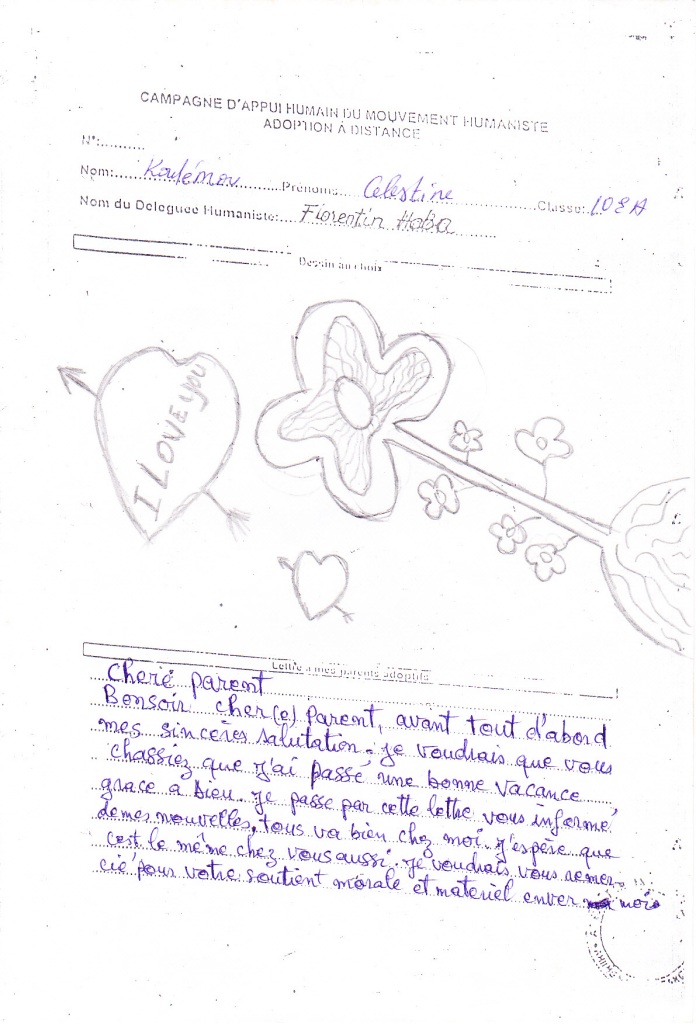 CAMPAGNE D'APPUI HUMAIN DU MOUVEMENT HUMANISTE
ADOPTION A DISTANCE
N°:..........
Nom:.....Koulémou.....Prénoms....Celestine..........Classe:.10è A
Nom du Deleguee Humaniste:....Florentin Haba..........
Dessin au choix
I LOVE you
Lettre à mes parents adoptifs
Cherie parent
Bonsoir cher(e) Parent, avant tout d'abord
mes sincères salutation. je voudrais que vous
chassiez que j'ai passé une bonne vacance
grace a Dieu. Je passe par cette lettre vous informé
demes nouvelles, tous va bien chez moi. j'espère que
c'est le même chez vous aussi. je voudrais vous remer-
cié pour votre soutient morale et materiel enver moi